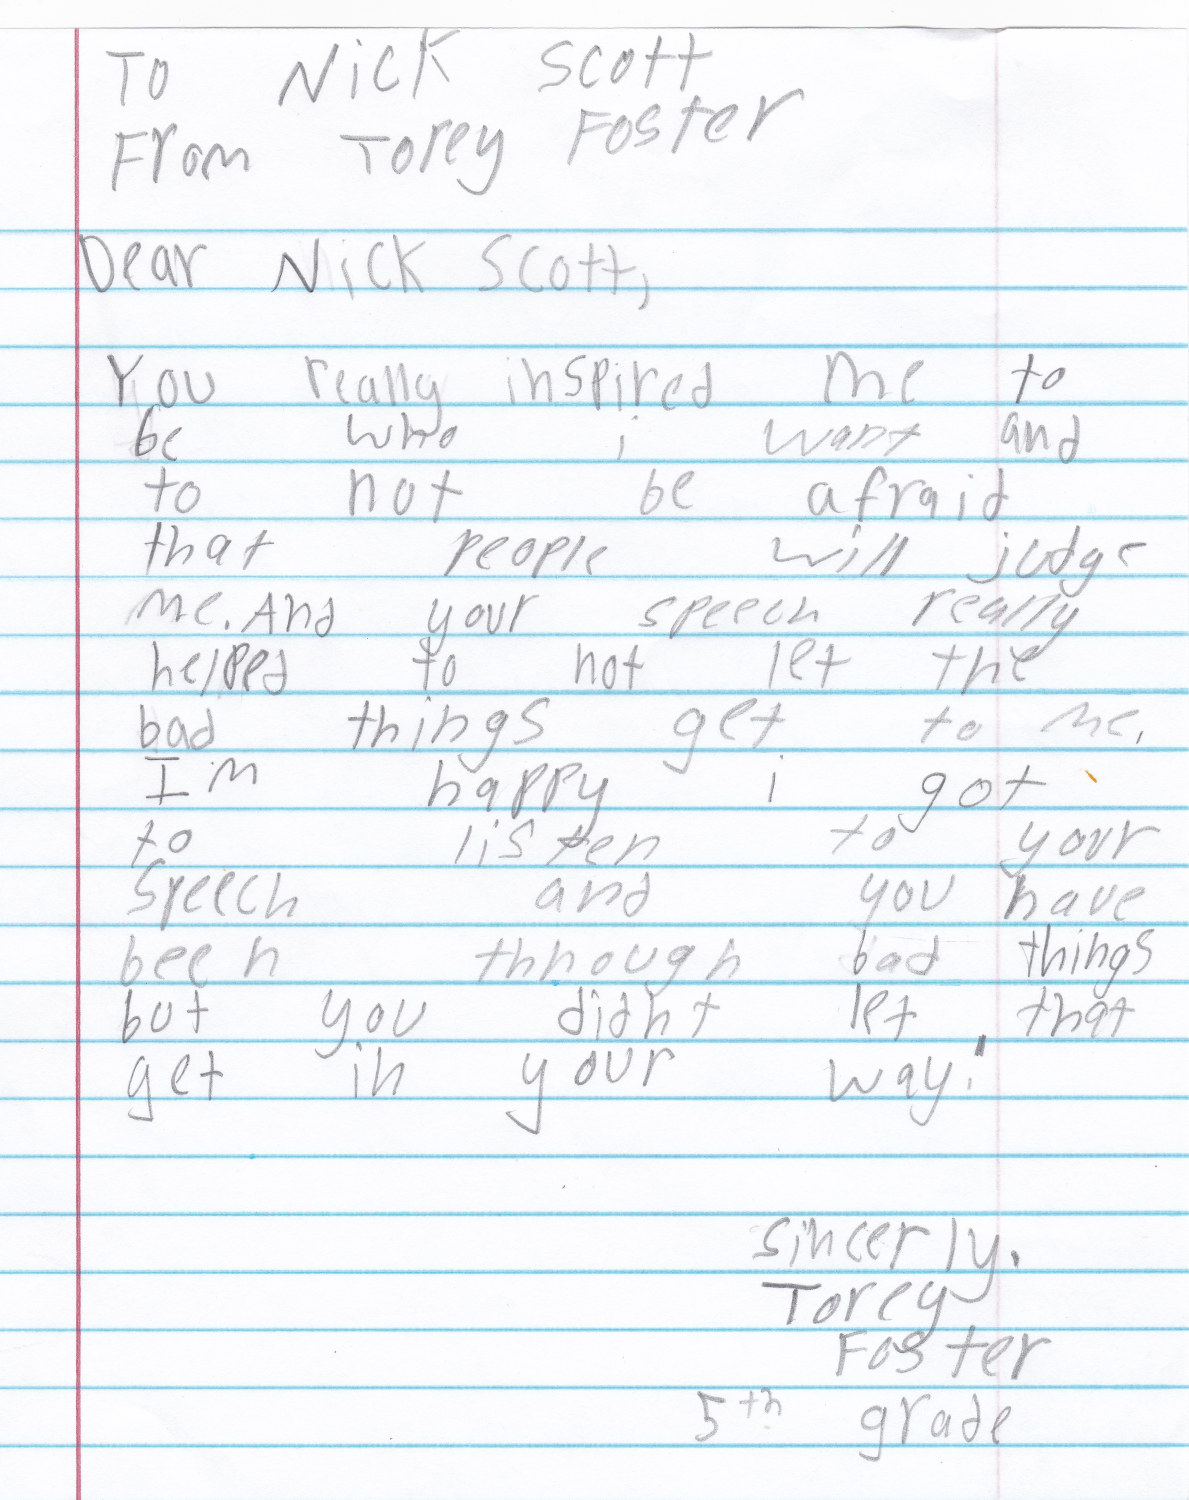 To Nick Scott
From Torey Foster
Dear Nick Scott,
You really inspired me to
be who i want and
to not be afraid
that people will judge
me. And your speech really
helped to not let the
bad things get to me.
I'm happy i got
to listen to your
speech and you have
been thhough bad things
but you didnt let that
get in your way!
sincerly.
Torey
Foster
5th grade